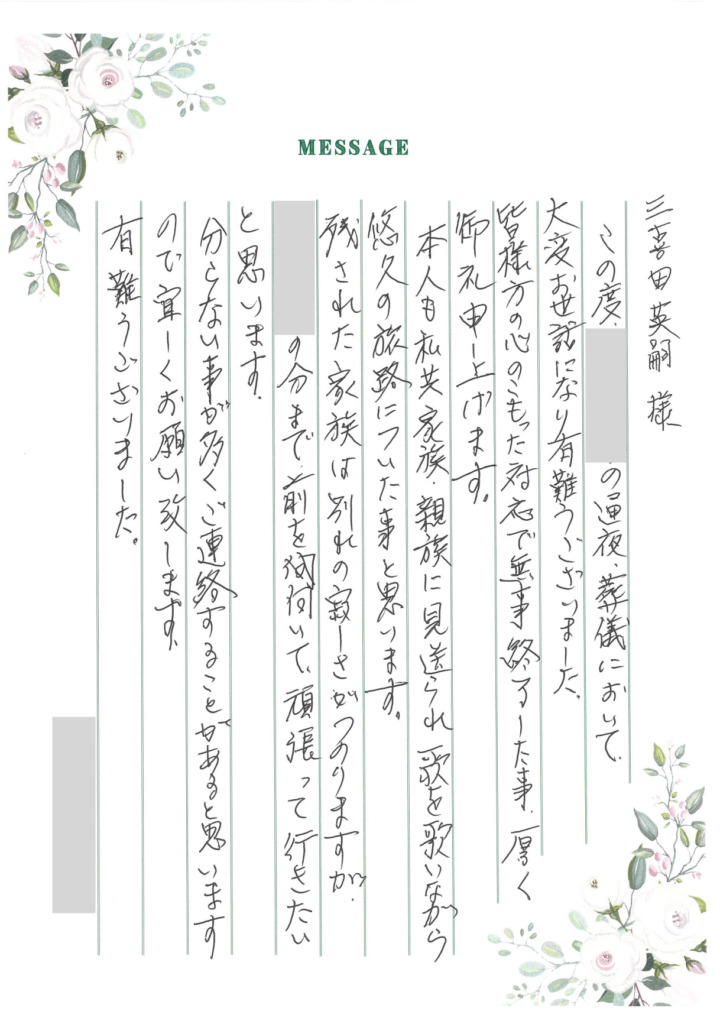 MESSAGE
三喜田英嗣 様
この度、
の通夜、葬儀において、
大変お世話になり有難うございました。
皆様方の心のこもった対応で無事終了した事、厚く
御礼申し上げます。
本人も私共家族、親族に見送られ歌を歌いながら
悠久の旅路についた事と思います。
残された家族は別れの寂しさがつのりますが、
の分まで、前を向いて、頑張って行きたい
と思います。
分らない事が多くご連絡することがあると思います
ので宜しくお願い致します。
有難うございました。